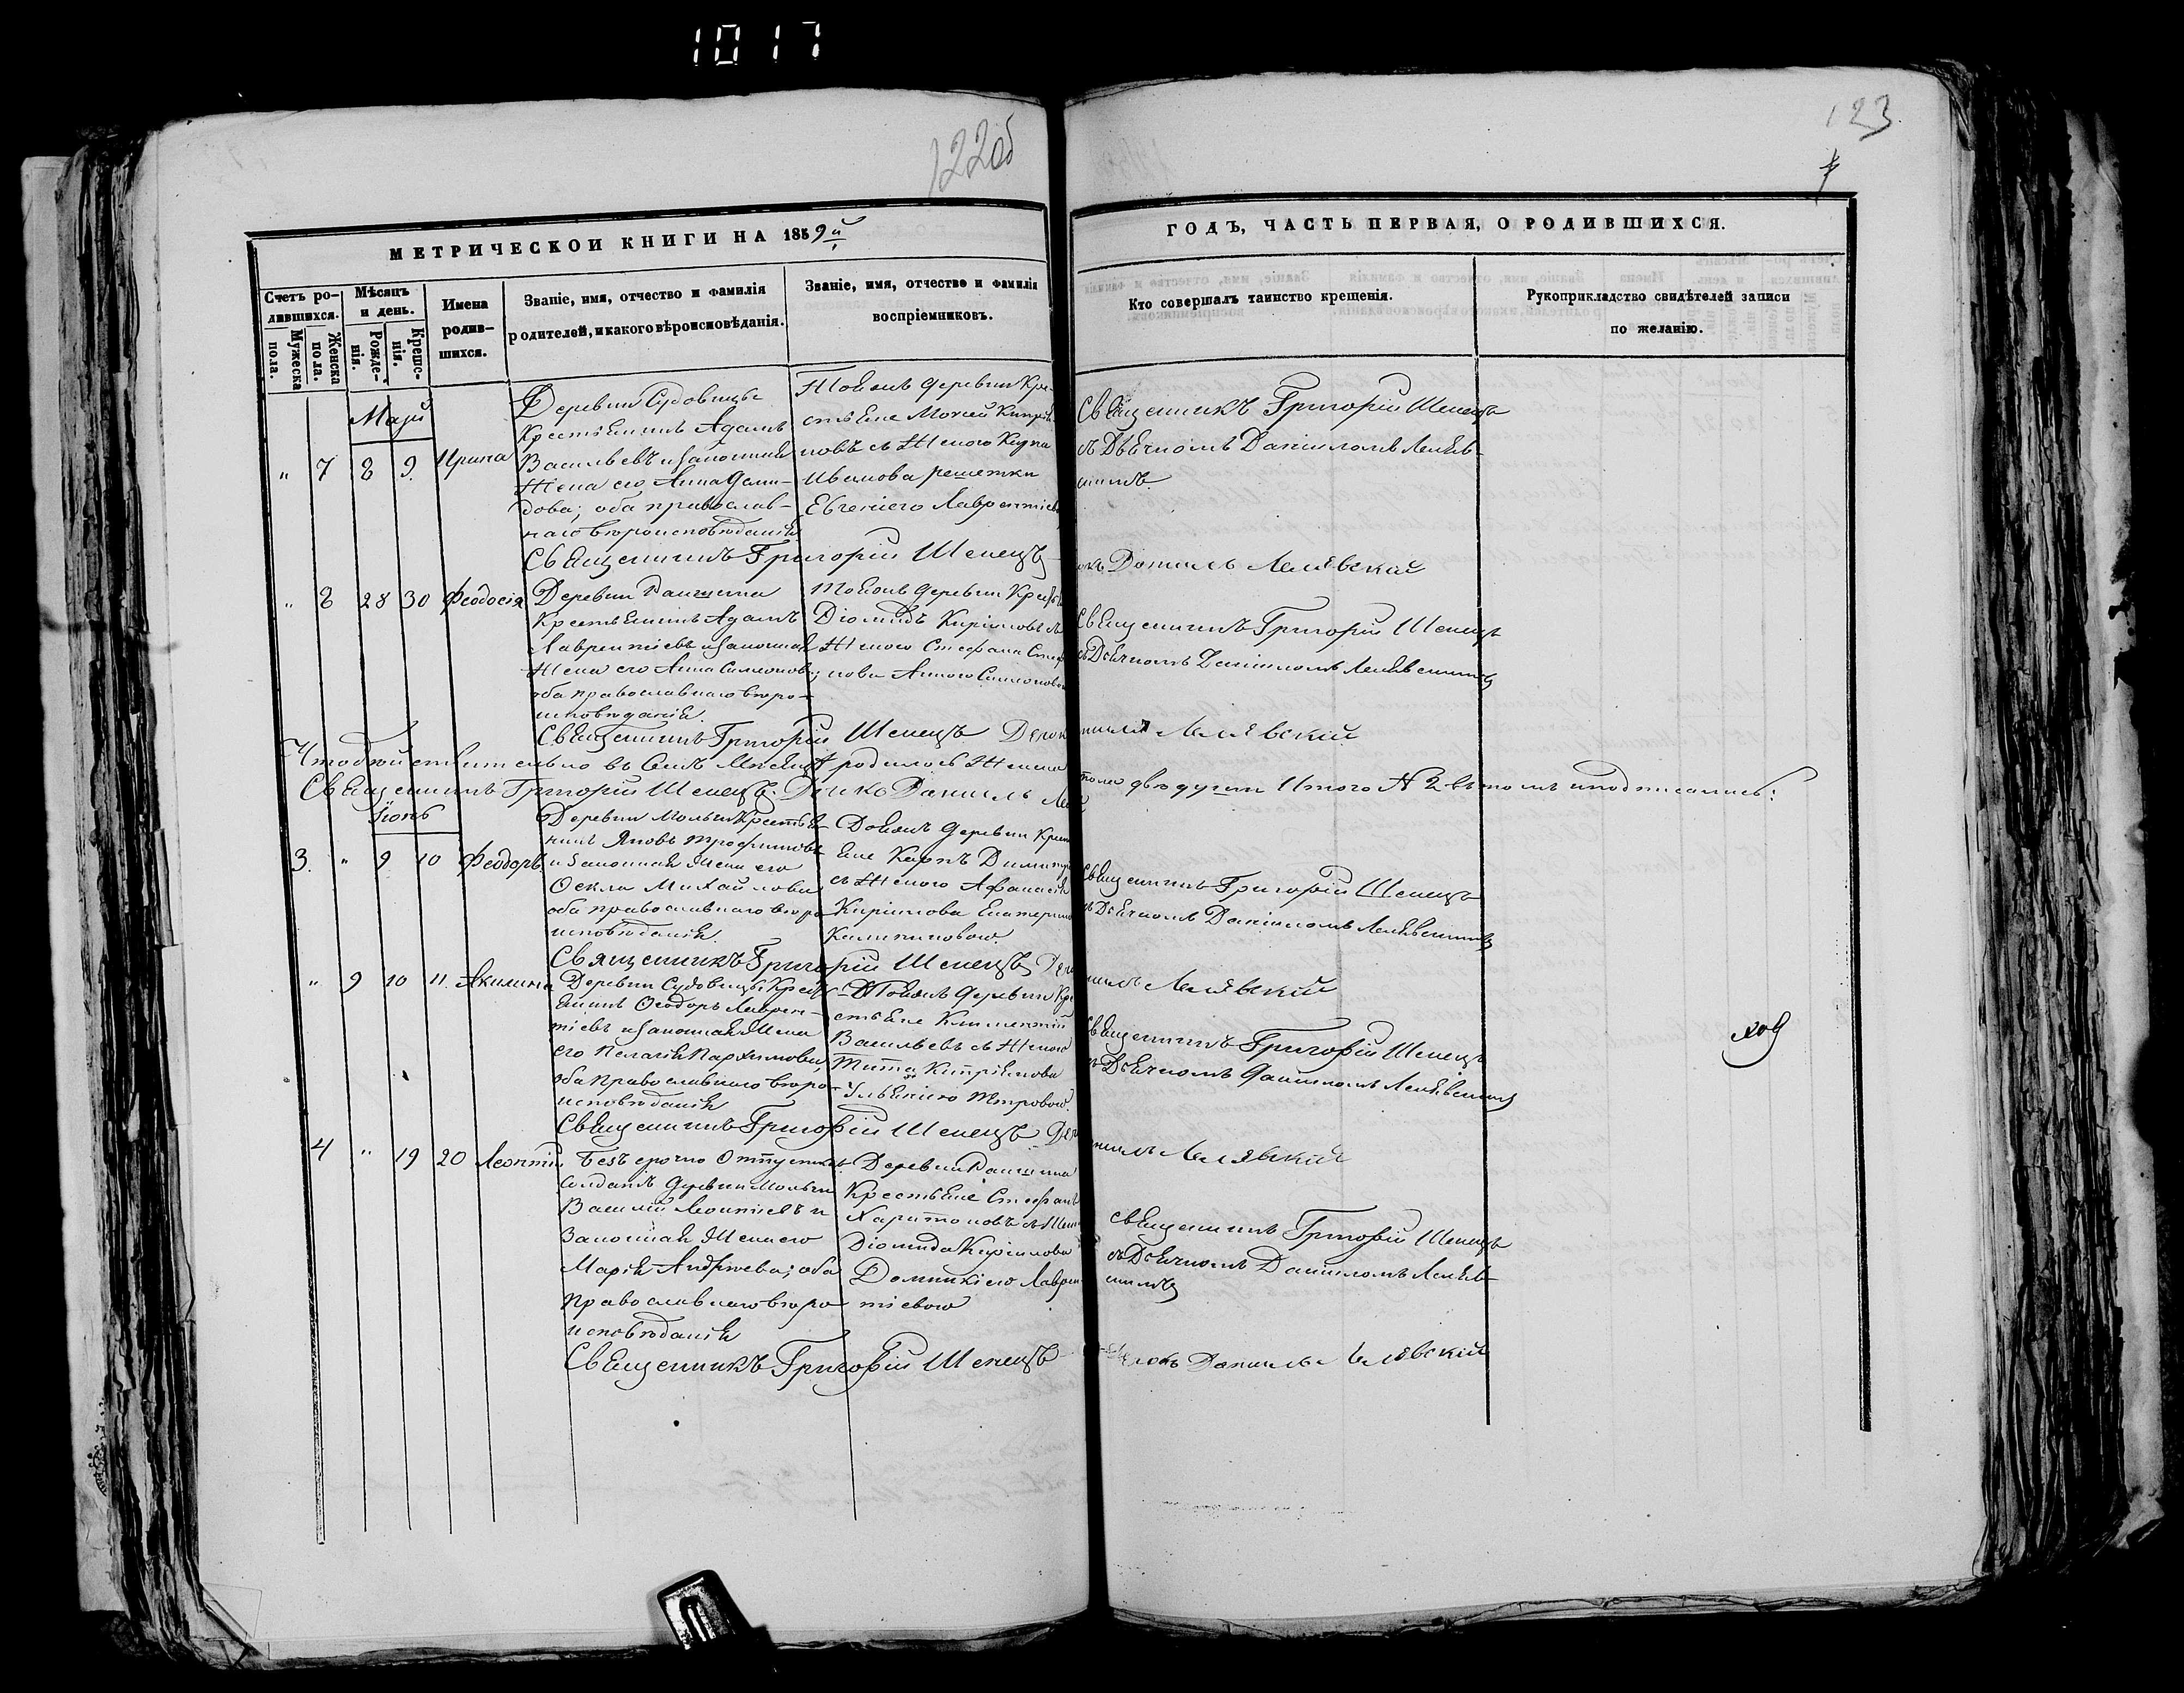 1017
122об
123
МЕТРИЧЕСКОЙ КНИГИ НА 1859й
ГОДЪ, ЧАСТЬ ПЕРВАЯ, О РОДИВШИХСЯ.
Счетъ ро-
дившихся.
Мужеска
пола.
Женска
пола.
Мѣсяцъ
и день.
Рожде-
нія.
Креще-
нія.
Имена
родив-
шихся.
Званіе, имя, отчество и фамилія
родителей, и какого вѣроисповѣданія.
Званіе, имя, отчество и фамилія
воспріемниковъ.
Кто совершалъ таинство крещенія.
Рукоприкладство свидѣтелей записи
по желанію.
Май
" 7 8 9. Ирина
Деревни Судовицы
Крестьянинъ Адамъ
Васильевъ и законная
Жена его Анна Деми-
дова; оба православ-
наго вѣроисповѣданія
Тойже деревни Кре-
стьяне Мойсей
новъ съ Женою
Иванова
Евгеніею Лаврентіев
Священникъ Григорій Шенецъ
съ Дьячкомъ Даніиломъ Леляв-
скимъ.
Священникъ Григорій Шенецъ
Даниилъ Лелявскій
" 8 28 30 Феодосія
Деревни
Крестьянинъ Адамъ
Лаврентіевъ и законная
Жена его Анна Симеонова;
оба православнаго вѣро-
исповѣданія.
Тойже деревни
Діомидъ Кириловъ съ
Женою Стефана
нова Анною Симеоновою
Священникъ Григорій Шенецъ
съ Дьячкомъ Даніиломъ Лелявскимъ
Священникъ Григорій Шенецъ Дьячокъ
Лелявскій
Что дѣйствительно въ семъ Мѣсяцѣ родилось Женска
пола двѣ души Итого № 2 въ томъ и подписались:
Священникъ Григорій Шенецъ. Даниилъ
Іюнь
3. " 9 10 Феодоръ
Деревни Крестья-
нинъ Яковъ Трофимовъ
и законная Жена его
Оекла Михайлова
оба православнаго вѣро
исповѣданія.
Тойже деревни
Карпъ
съ Женою Афанасія
Кирилова
Священникъ Григорій Шенецъ
съ Дьячкомъ Даніиломъ Лелявскимъ
Священникъ Григорій Шенецъ
Лелявскій
" 9 10 11. Акилина
Деревни Судовицы Кресть
янинъ Ѳеодоръ Лаврен-
тіевъ и законная Жена
его Пелагія Пархимова,
оба православнаго вѣро-
исповѣданія
Тойже деревни Кре
стьяне Климентій
Васильевъ съ Женою
Тита Кипріянова
Ульяніею Петровою.
Священникъ Григорій Шенецъ
съ Дьячкомъ Даніиломъ Лелявскимъ
Священникъ Григорій Шенецъ
Лелявскій
4 " 19 20 Леонтій
Безсрочно Отпускной
солдатъ деревни
Василій Леонтіевъ и
Законная Жена его
Марія Андреева; оба
Православнаго вѣро
исповѣданія
Деревни
Крестьяне Стефанъ
Харитоновъ съ
Діомида Кирилова
Домникіею Лаврен
тіевою
Священникъ Григорій Шенецъ
съ Дьячкомъ Даніиломъ Леляв-
скимъ
Священникъ Григорій Шенецъ
Дьячокъ Даниилъ Лелявскій